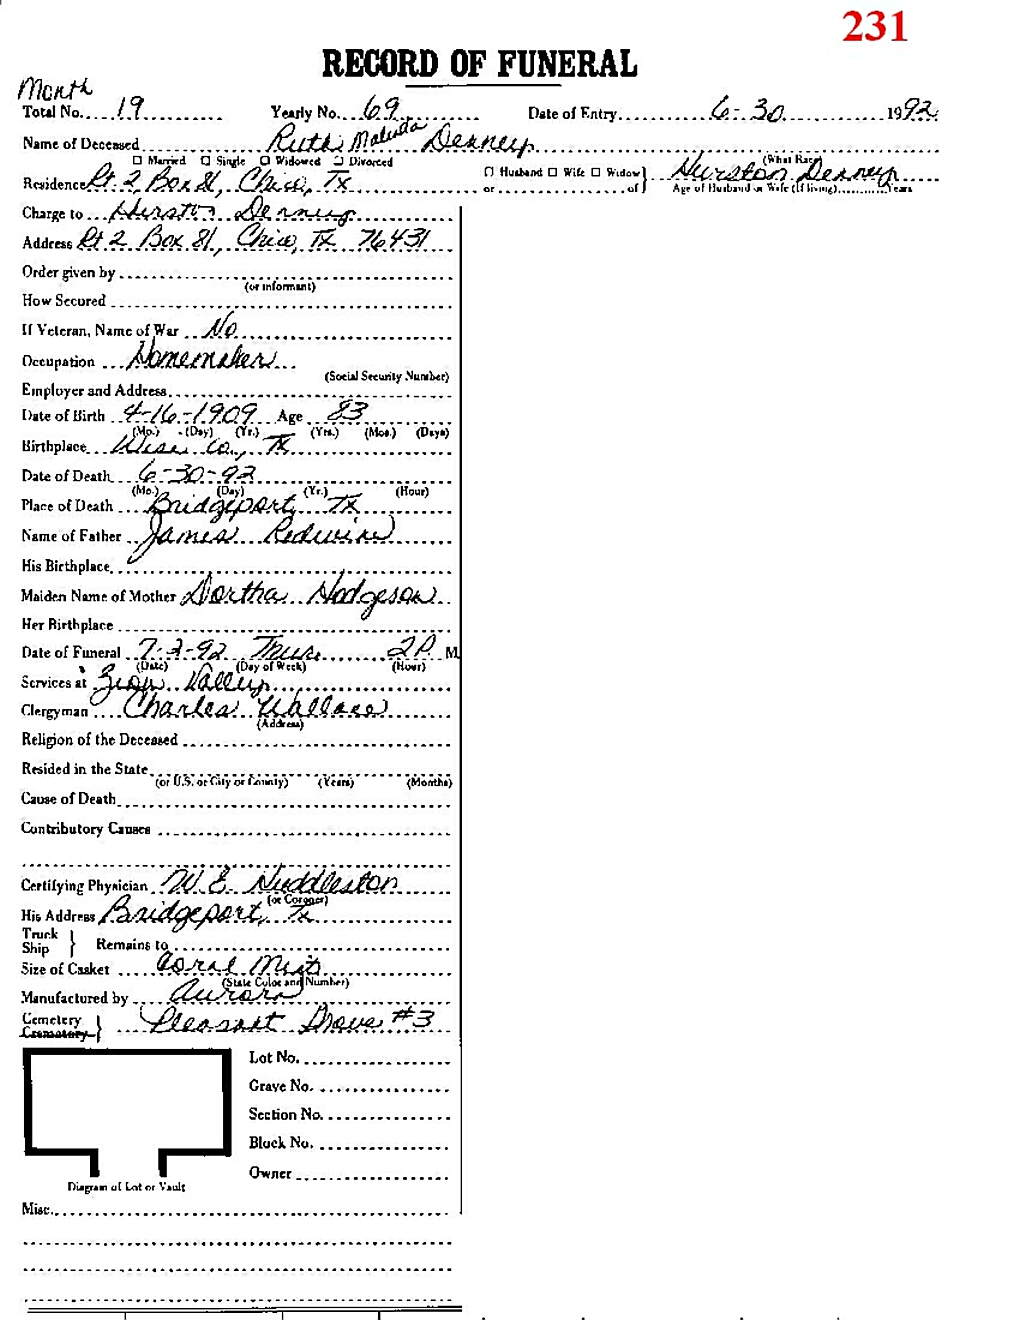 231
RECORD OF FUNERAL
Month
Total No. 19 Yearly No. 69 Date of Entry 6-30 1992
Name of Deceased Ruth Malinda Denney
Married Single Widowed Divorced (What Race)
Residence Rt. 2 Box 81, Chico, Tx Husband Wife Widow or of Hurston Denney
Age of Husband or Wife (If living) Years
Charge to Hurston Denney
Address Rt 2 Box 81, Chico, Tx 76431
Order given by
(or informant)
How Secured
If Veteran, Name of War No
Occupation Homemaker
(Social Security Number)
Employer and Address
Date of Birth 4-16-1909 Age 83
(Mo.) (Day) (Yr.) (Yrs.) (Mos.) (Days)
Birthplace Wise Co., Tx
Date of Death 6-30-92
(Mo.) (Day) (Yr.) (Hour)
Place of Death Bridgeport, Tx
Name of Father James Redwine
His Birthplace
Maiden Name of Mother Dortha Hodgeson
Her Birthplace
Date of Funeral 7-2-92 Thur. 2P M
(Date) (Day of Week) (Hour)
Services at Zion Valley
Clergyman Charles Wallace
(Address)
Religion of the Deceased
Resided in the State
(or U.S. or City or County) (Years) (Months)
Cause of Death
Contributory Causes
Certifying Physician W. E. Huddleston
(or Coroner)
His Address Bridgeport, Tx
Truck
Ship Remains to
Size of Casket Coral Mist
(State Color and Number)
Manufactured by Aurora
Cemetery
Crematory Pleasant Grove #3
Lot No.
Grave No.
Section No.
Block No.
Owner
Diagram of Lot or Vault
Misc.